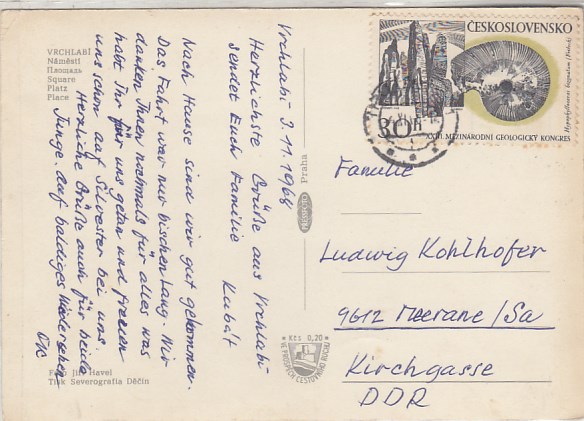 VRCHLABÍ
Náměstí
Площадь
Square
Platz
Place
Vrchlabí 3.11.1968
Herzlichste Grüße aus Vrchlabí
sendet Euch Familie Kubát
Nach Hause sind wir gut gekommen.
Das Fahrt war nur bischen lang. Wir
danken Ihnen nochmals für alles was
habt Ihr für uns getan und freuen
uns schon auf Silvester bei uns
Herzliche Grüße auch für beide
Junge. auf baldiges Wiedersehen
Foto Jiří Havel
Tisk Severografia Děčín
Praha
PRESSFOTO
Kčs 0,20
VE PROSPĚCH CESTOVNÍHO RUCHU
ČESKOSLOVENSKO
30h
XXIII. MEZINÁRODNÍ GEOLOGICKÝ KONGRES
Familie
Ludwig Kohlhofer
9612 Meerane/Sa
Kirchgasse
DDR